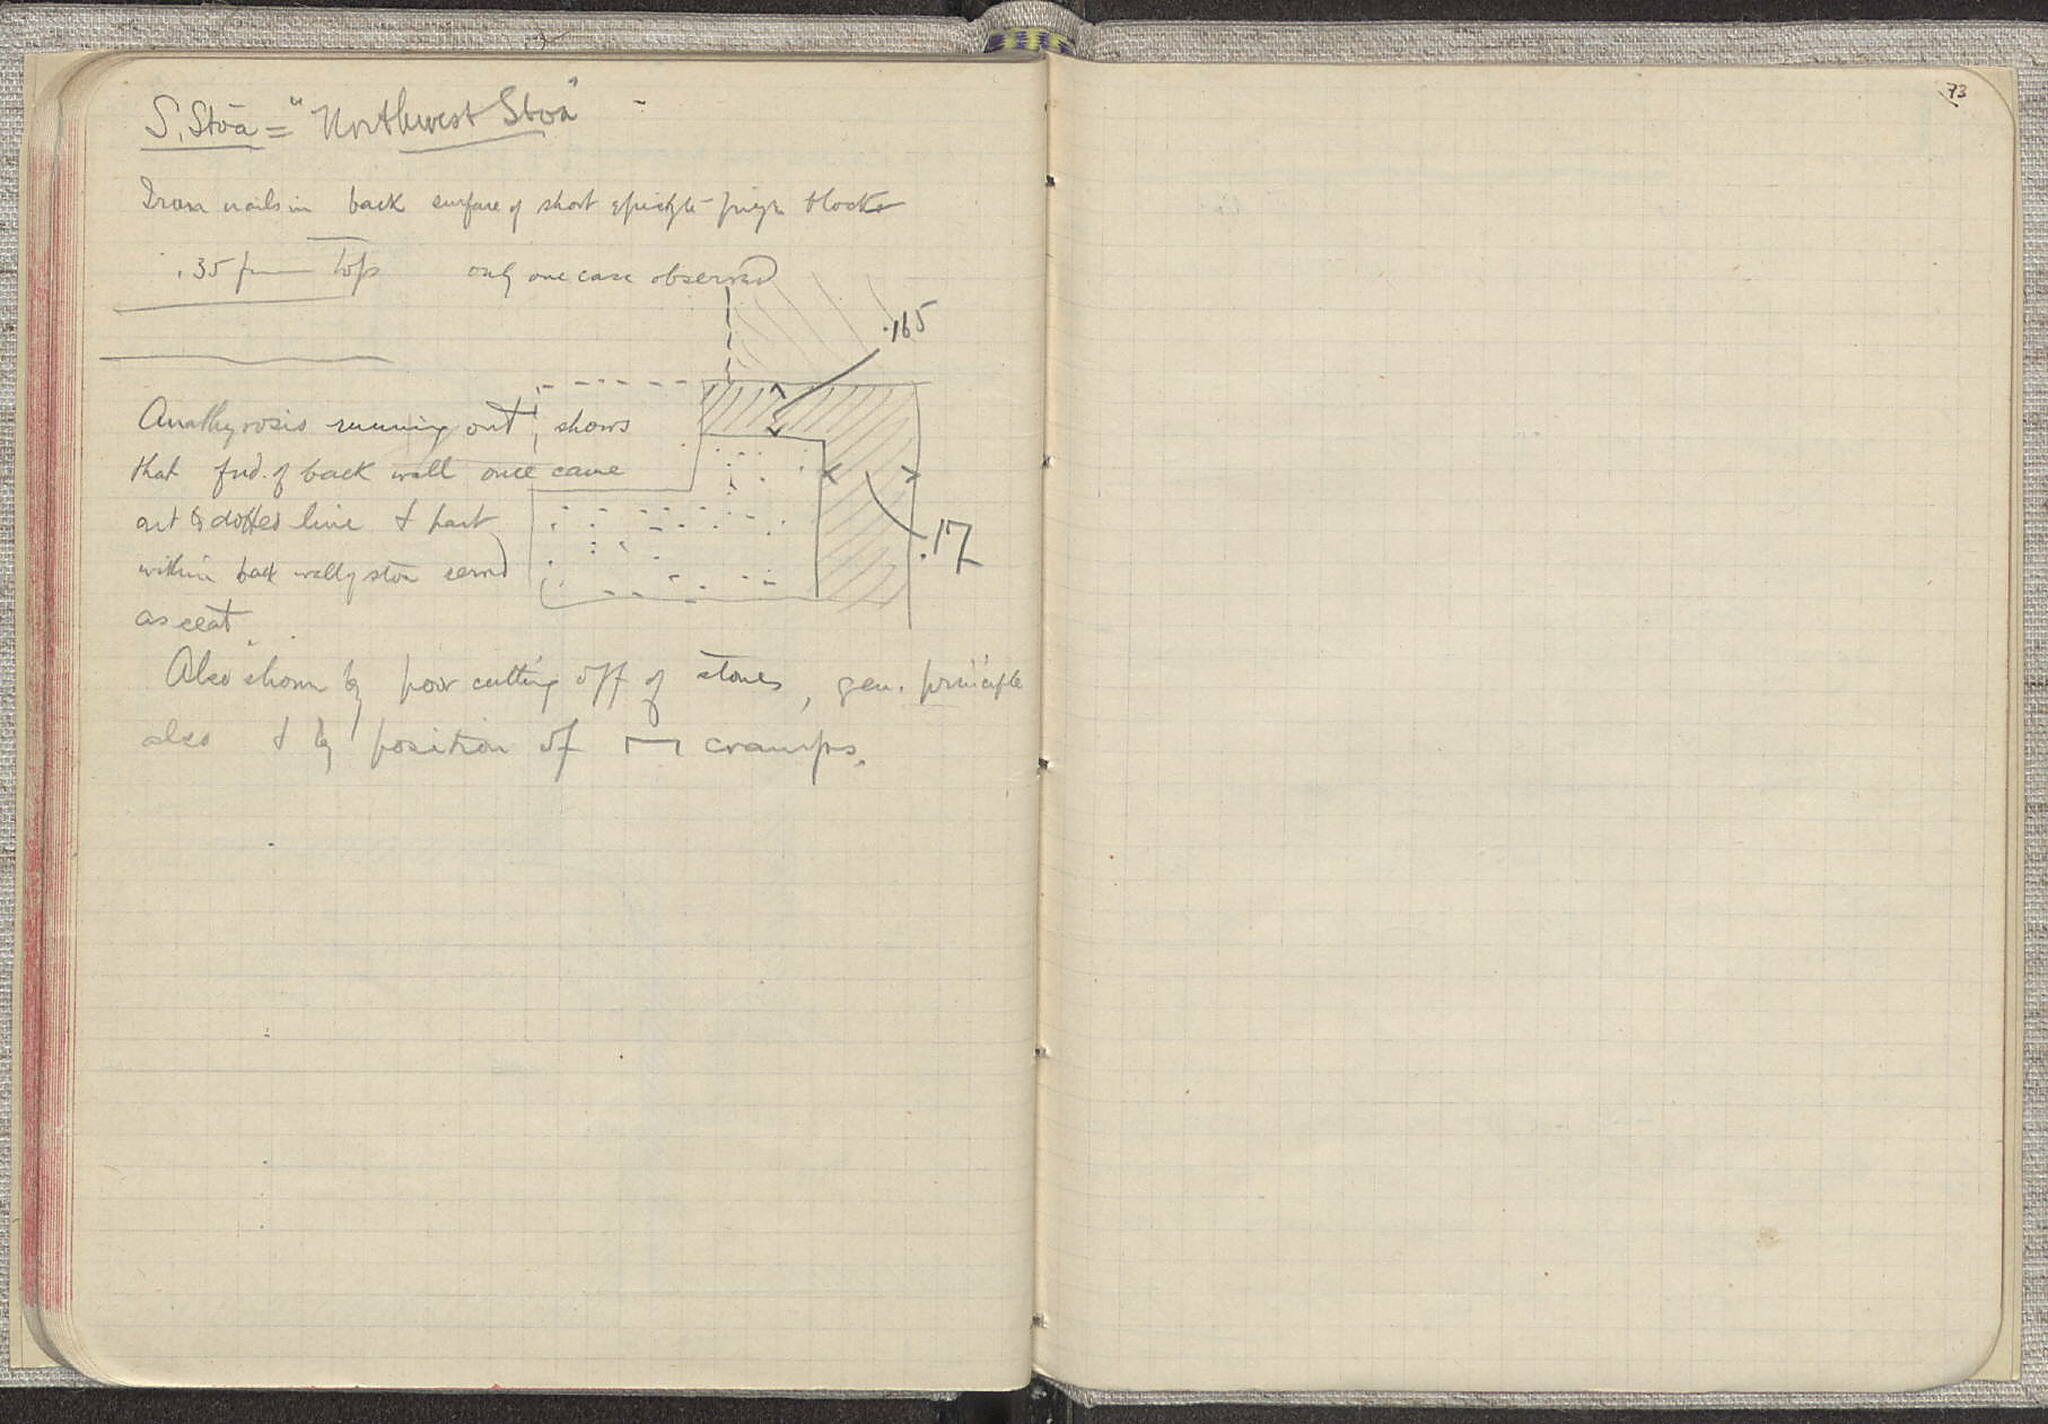 S. Stoa = "Northwest Stoa"
Iron nails in back surface of short epistyle-frieze blocks
.35 from top only one case observed
.165
Anathyrosis running out, shows
that fnd. of back wall once came
out to dotted line & part
within back wall of stoa served
as seat.
.17
Also shown by poor cutting off of stones, gen. principle
also & by position of cramps.
73